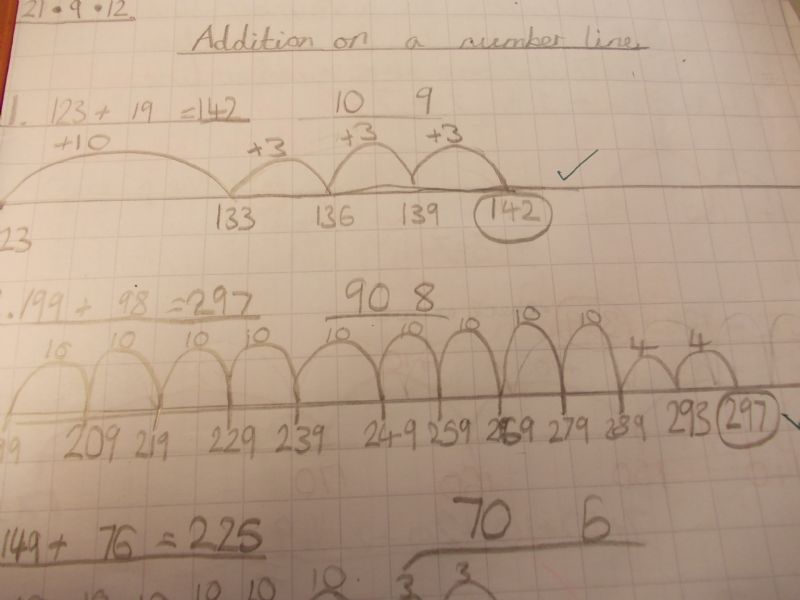 21.9.12
Addition on a number line
1. 123 + 19 = 142 10 9
+10 +3 +3 +3
23 133 136 139 142
199 + 98 = 297 90 8
10 10 10 10 10 10 10 10 10 4 4
99 209 219 229 239 249 259 269 279 289 293 297
149 + 76 = 225 70 6
10 10 10 3 3